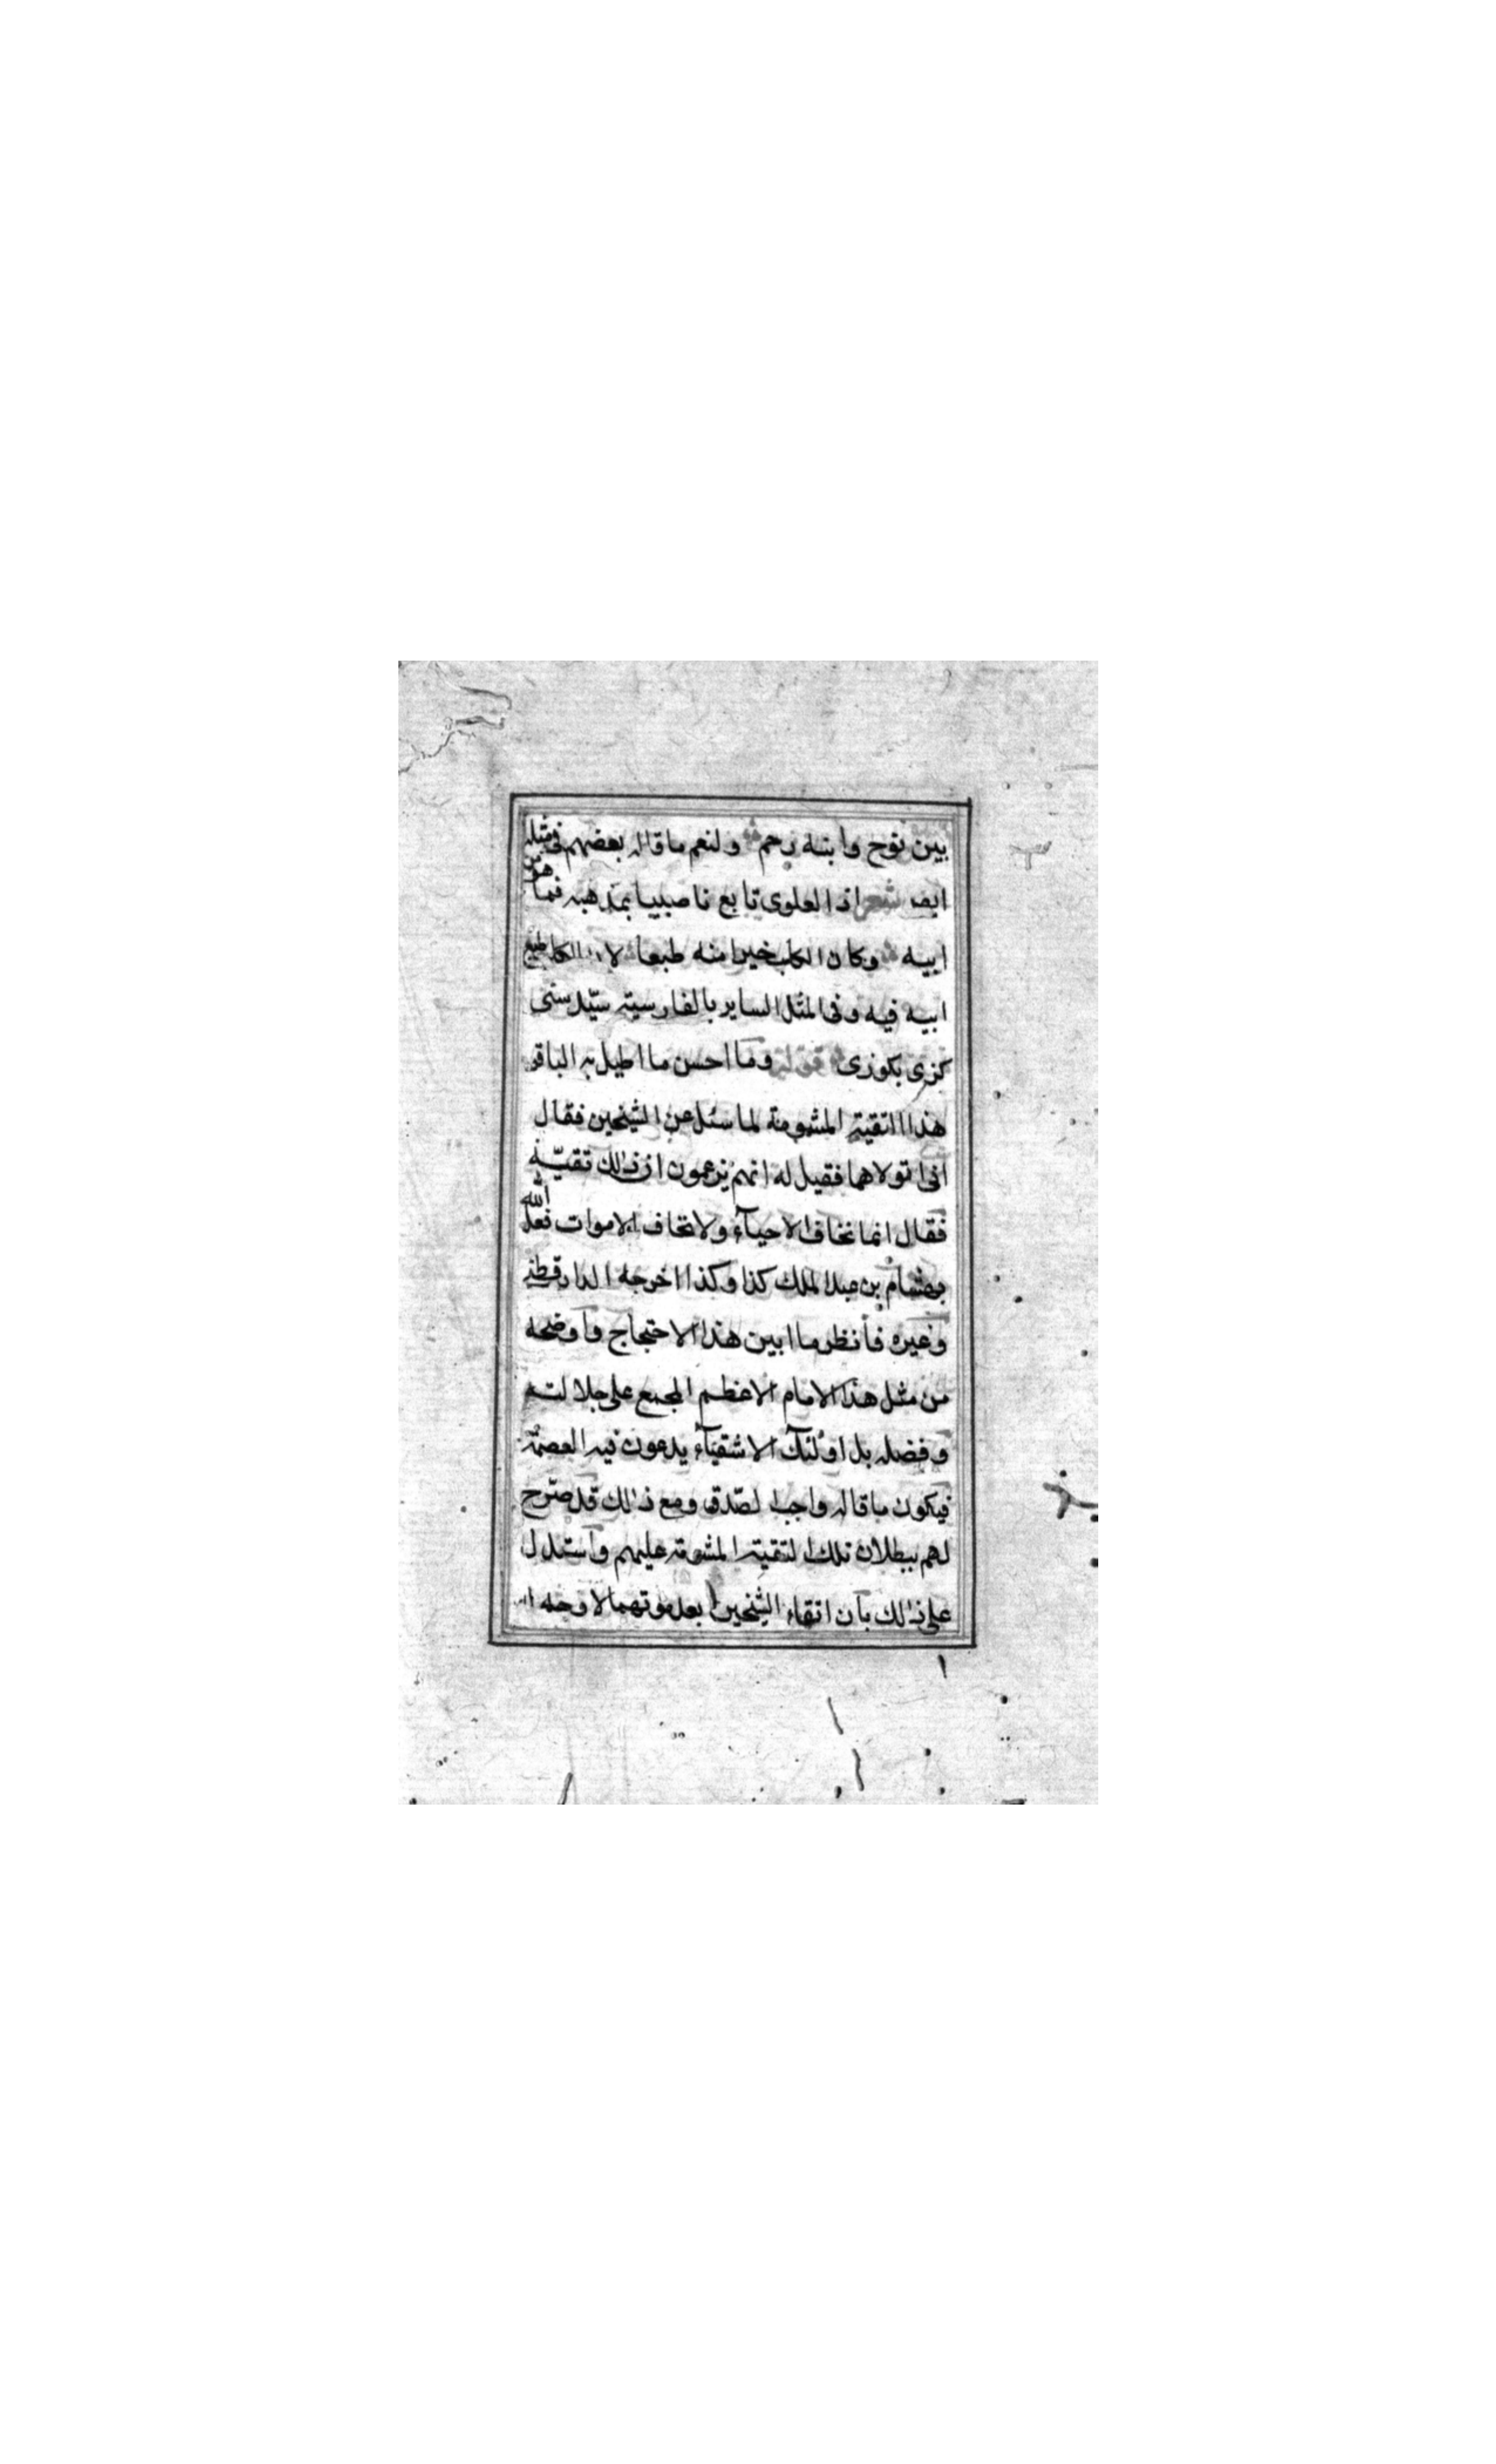 بين نوح وابنه رحم ولنعم ما قاله بعضهم في مثله
ايض شعر اذا العلوى تابع ناصبيا بمذهبه فما هو من
ابيه وكان الكلب خيرا منه طبعا لان الكلب طبع
ابيه فيه وفى المثل الساير بالفارسية سيّد سنى
كزى بكوزى قوله وما احسن ما ابطل به الباقر
هذا التقية المشومة لما سئل عن الشيخين فقال
انى اتولاهما فقيل له انهم يزعمون ان ذلك تقيّة
فقال انما نخاف الاحيآء ولا نخاف الاموات فعل الله
بهشام بن عبد الملك كذا وكذا اخرجه الدار قطني
وغيره فانظر ما ابين هذا الاحتجاج واوضحه
من مثل هذا الامام الاعظم المجمع على جلالته
وفضله بل اولئك الاشقيآء يدعون فيه العصمة
فيكون ما قاله واجب الصّدق ومع ذلك قد صرّح
لهم ببطلان تلك التقية المشومة عليهم واستدل
على ذلك بان اتقاء الشيخين بعد موتهما لا وجه